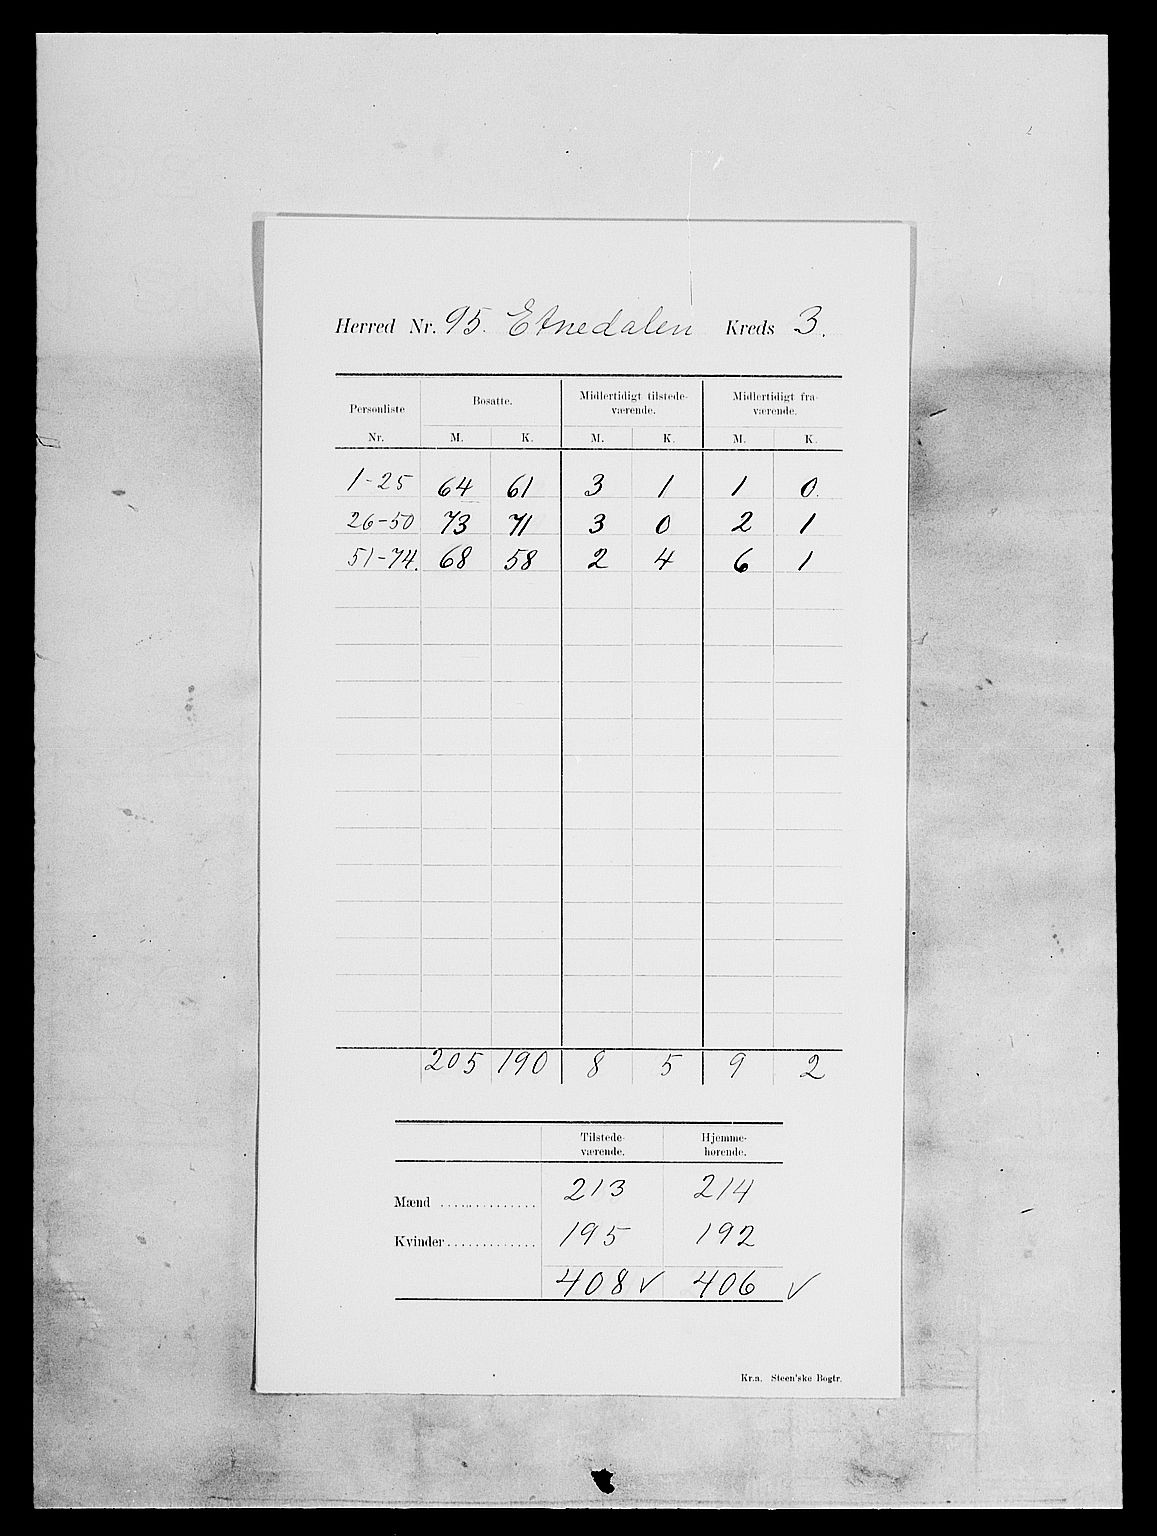 Herred Nr. 95. Etnedalen Kreds 3.
Personliste Bosatte. Midlertidigt tilstede- Midlertidigt fra-
værende. værende.
Nr. M. K. M. K. M. K.
1-25 64 61 3 1 1 0.
26-50 73 71 3 0 2 1
51-74. 68 58 2 4 6 1
205 190 8 5 9 2
Tilstede- Hjemme-
værende. hørende.
Mænd .............. 213 214
Kvinder............. 195 192
408 ✓ 406 ✓
Kr.a. Steen'ske Bogtr.